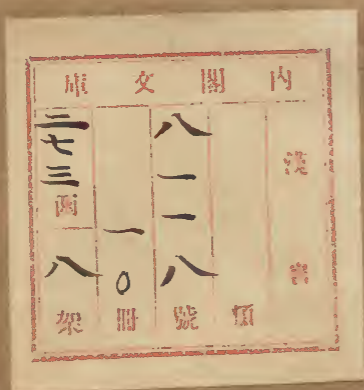 內閣文庫
漢書
類
八一一八號
一〇冊
三七三函
八架